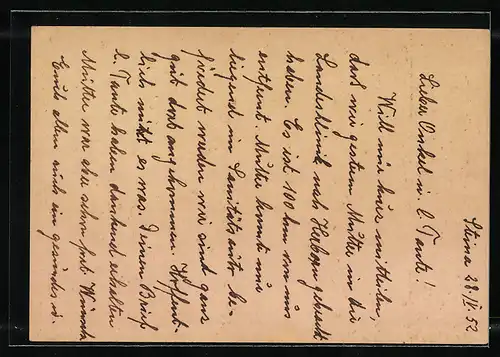 Stüna 28.IV.52
Lieber Onkel u. l. Tante!
Will nur kurz mitteilen,
daß wir gestern Mutter in die
Landesklinik nach gebracht
haben. Es ist 100 km von uns
entfernt. Mutter konnte nur
liegend im Sanitätsauto be-
fördert werden wir sind ganz
gut dort angekommen. Hoffent-
lich nützt es was. Deinen Brief
l. Tante haben dankend erhalten
Mutter war aber sehr
Euch allen auch ein gesundes u.